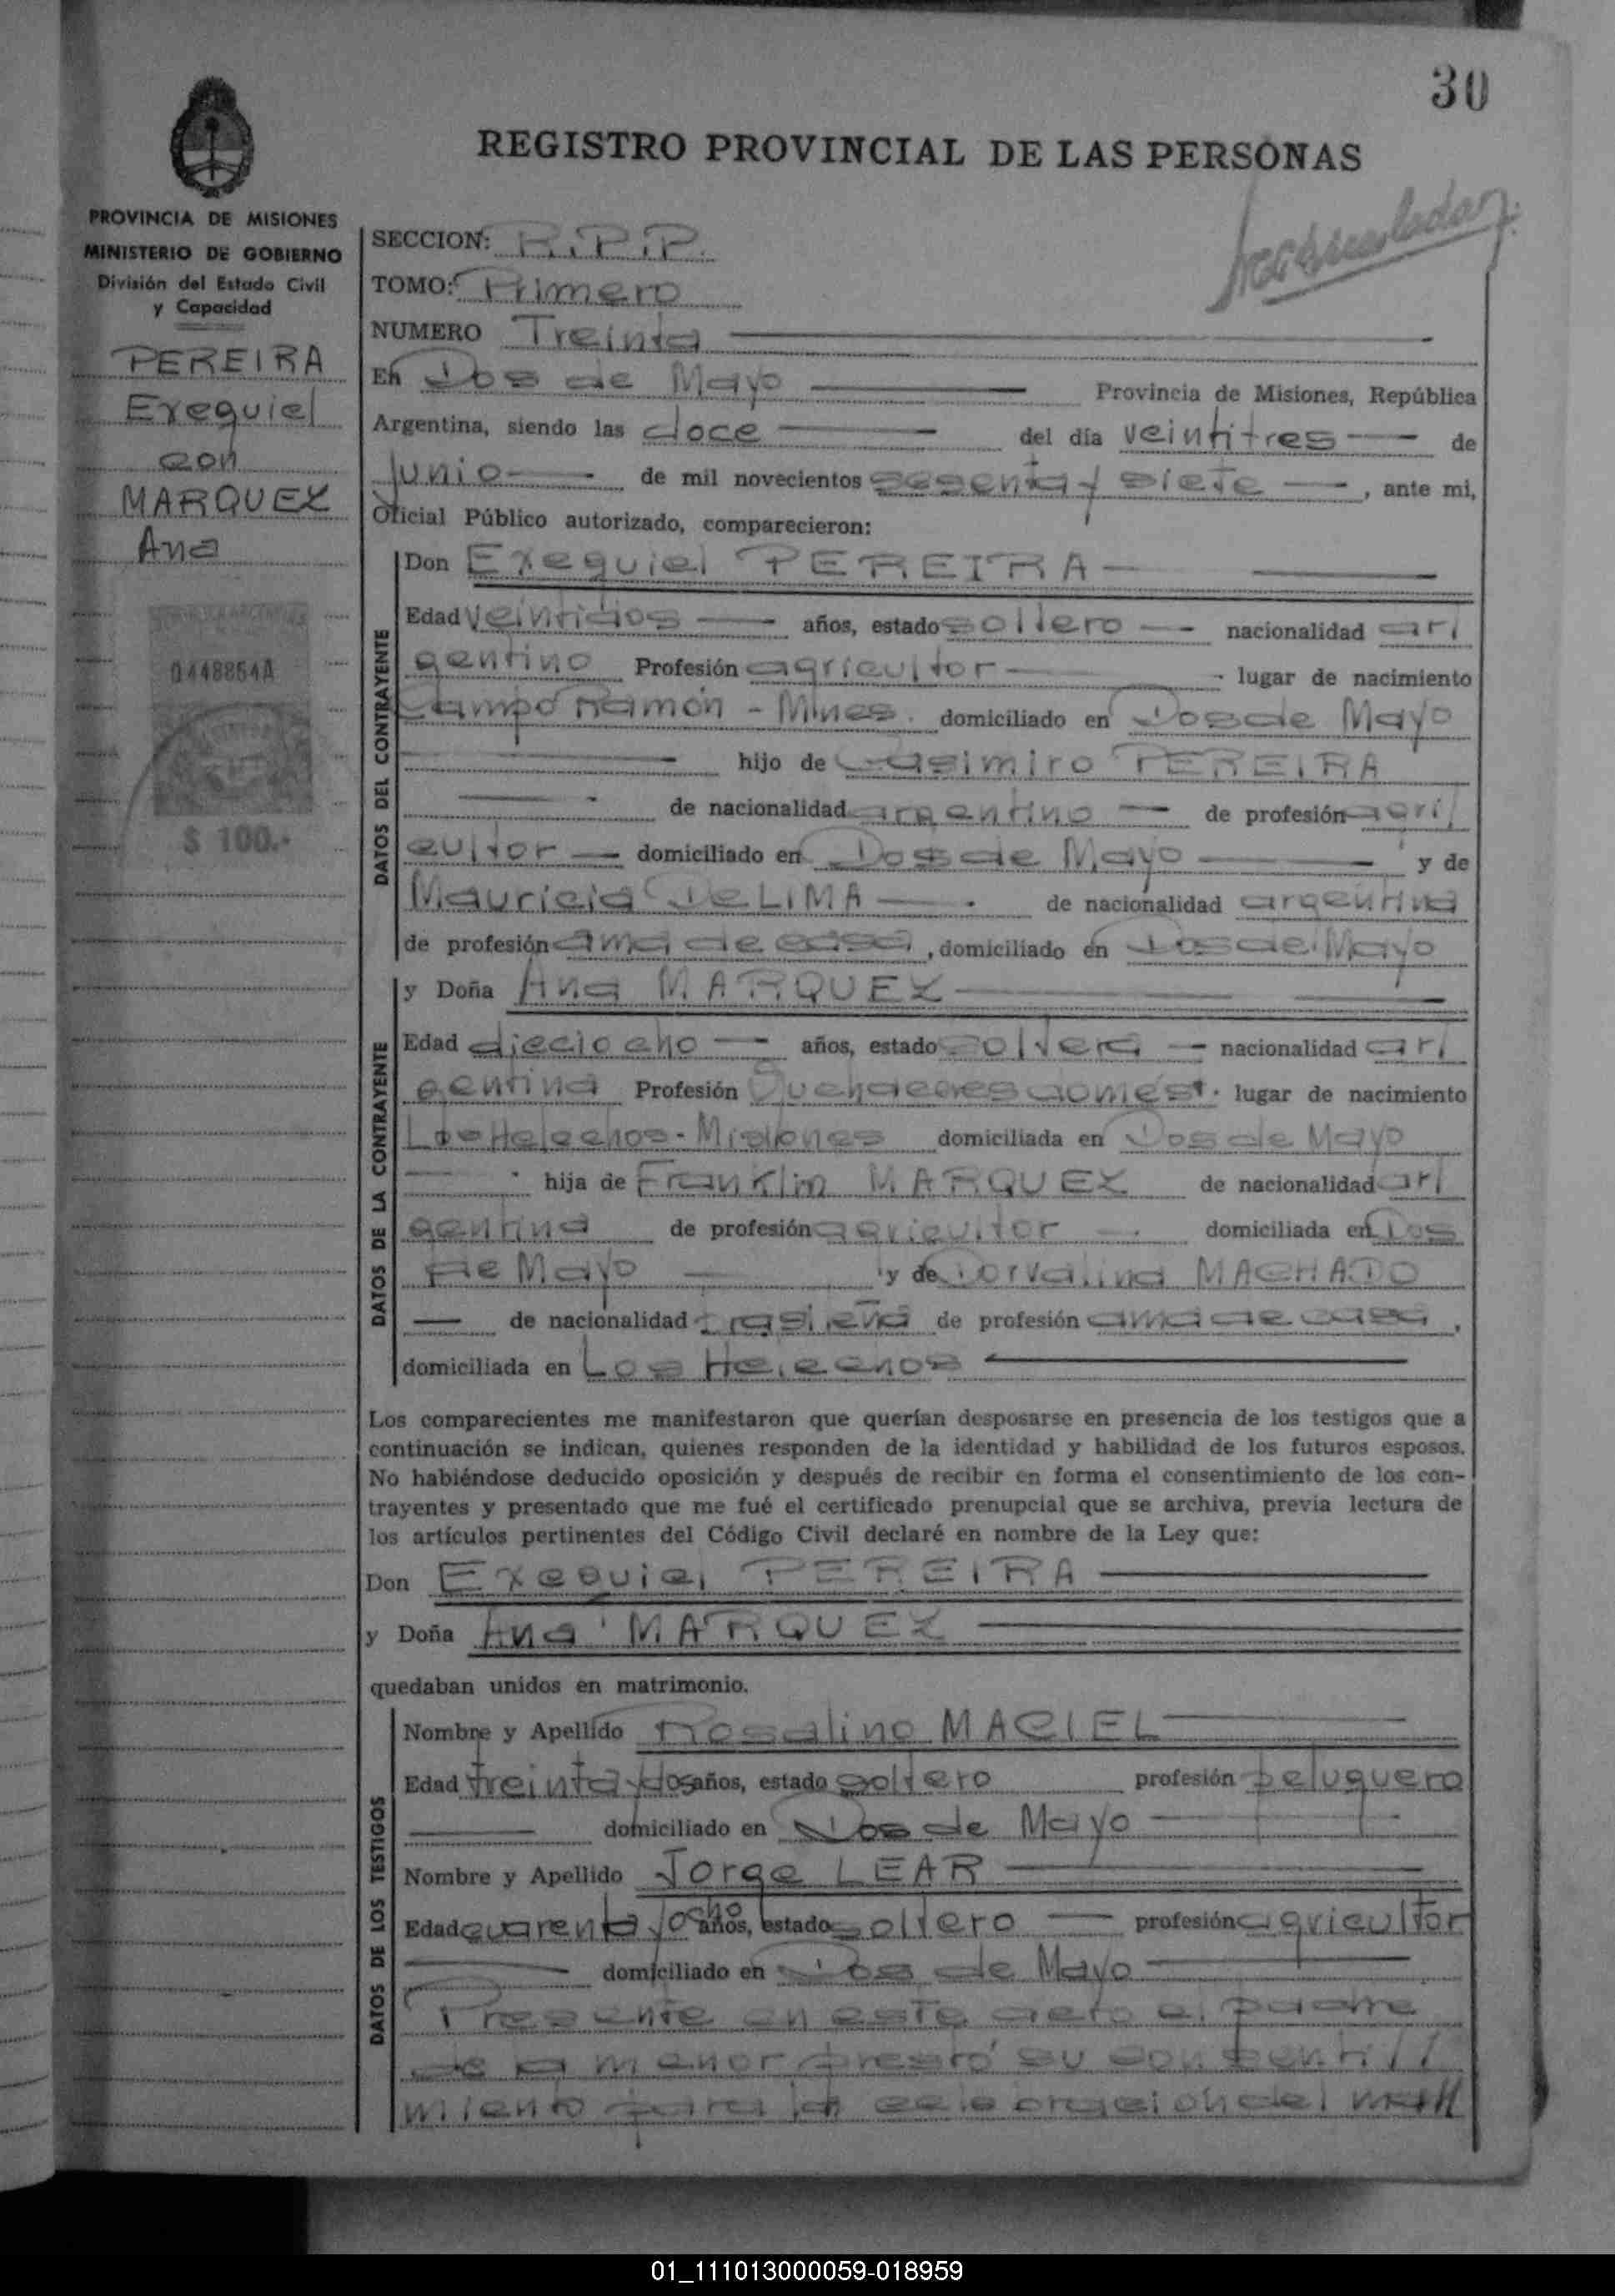 30
REGISTRO PROVINCIAL DE LAS PERSONAS
PROVINCIA DE MISIONES
MINISTERIO DE GOBIERNO
División del Estado Civil
y Capacidad
PEREIRA
Exequiel
con
MARQUEZ
Ana
0448854A
$ 100.-
SECCION: R.P.P.
TOMO: Primero
NUMERO Treinta
En Dos de Mayo Provincia de Misiones, República
Argentina, siendo las doce del día veintitres de
Junio de mil novecientos sesenta y siete, ante mi,
Oficial Público autorizado, comparecieron:
DATOS DEL CONTRAYENTE
Don Exequiel PEREIRA
Edad veintidos años, estado soltero nacionalidad ar/
gentino Profesión agricultor lugar de nacimiento
Campo Ramón - Mnes. domiciliado en Dos de Mayo
hijo de Casimiro PEREIRA
de nacionalidad argentino de profesión agri/
cultor domiciliado en Dos de Mayo y de
Mauricia De LIMA de nacionalidad argentina
de profesión ama de casa, domiciliado en Dos de Mayo
DATOS DE LA CONTRAYENTE
y Doña Ana MARQUEZ
Edad dieciocho años, estado soltera nacionalidad ar/
gentina Profesión Quehaceres domést. lugar de nacimiento
Los Helechos - Misiones domiciliada en Dos de Mayo
hija de Franklin MARQUEZ de nacionalidad ar/
gentina de profesión agricultor domiciliada en Dos
de Mayo y de Dorvalina MACHADO
de nacionalidad brasileña de profesión ama de casa,
domiciliada en Los Helechos
Los comparecientes me manifestaron que querían desposarse en presencia de los testigos que a
continuación se indican, quienes responden de la identidad y habilidad de los futuros esposos.
No habiéndose deducido oposición y después de recibir en forma el consentimiento de los con-
trayentes y presentado que me fué el certificado prenupcial que se archiva, previa lectura de
los artículos pertinentes del Código Civil declaré en nombre de la Ley que:
Don Exequiel PEREIRA
y Doña Ana MARQUEZ
quedaban unidos en matrimonio.
DATOS DE LOS TESTIGOS
Nombre y Apellido Rosalino MACIEL
Edad treinta y dos años, estado soltero profesión peluquero
domiciliado en Dos de Mayo
Nombre y Apellido Jorge LEAR
Edad cuarenta y ocho años, estado soltero profesión agricultor
domiciliado en Dos de Mayo
Presente en este acto el padre
de la menor prestó su consenti//
miento para la celebración del
01_111013000059-018959